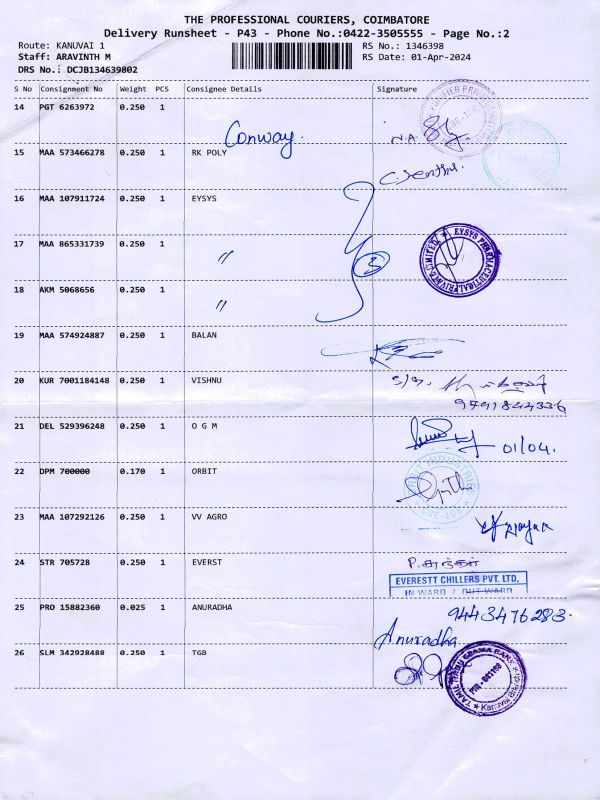 THE PROFESSIONAL COURIERS, COIMBATORE
Delivery Runsheet - P43 - Phone No.:0422-3505555 - Page No.:2
Route: KANUVAI 1 RS No.: 1346398
Staff: ARAVINTH M RS Date: 01-Apr-2024
DRS No.: DCJB134639802
S No Consignment No Weight PCS Consignee Details Signature
14 PGT 6263972 0.250 1 Conway
15 MAA 573466278 0.250 1 RK POLY
16 MAA 107911724 0.250 1 EYSYS
17 MAA 865331739 0.250 1 〃 3 EYSYS PHARMACEUTICAL PRIVATE LIMITED
18 AKM 5068656 0.250 1 〃
19 MAA 574924887 0.250 1 BALAN
20 KUR 7001184148 0.250 1 VISHNU
21 DEL 529396248 0.250 1 O G M 01/04.
22 DPM 700000 0.170 1 ORBIT
23 MAA 107292126 0.250 1 VV AGRO
24 STR 705728 0.250 1 EVERST
EVERESTT CHILLERS PVT. LTD,
IN WARD / OUT WARD
25 PRO 15882360 0.025 1 ANURADHA 9443476283.
Anuradha
26 SLM 342928488 0.250 1 TGB TAMIL NADU GRAMA BANK